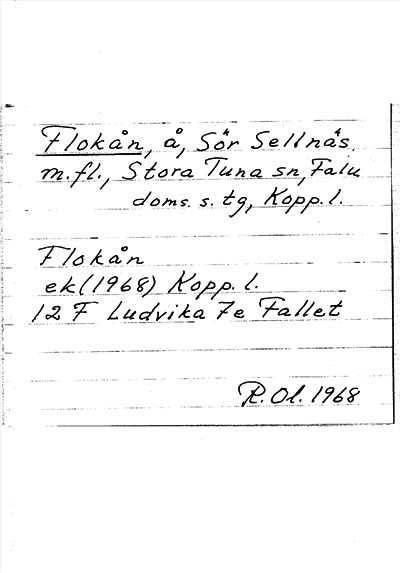 Flokån, å, Sör Sellnäs,
m.fl., Stora Tuna sn, Falu
doms. s. tg, Kopp. l.
Flokån
ek (1968) Kopp. l.
12 F Ludvika 7e Fallet
R. Ol. 1968